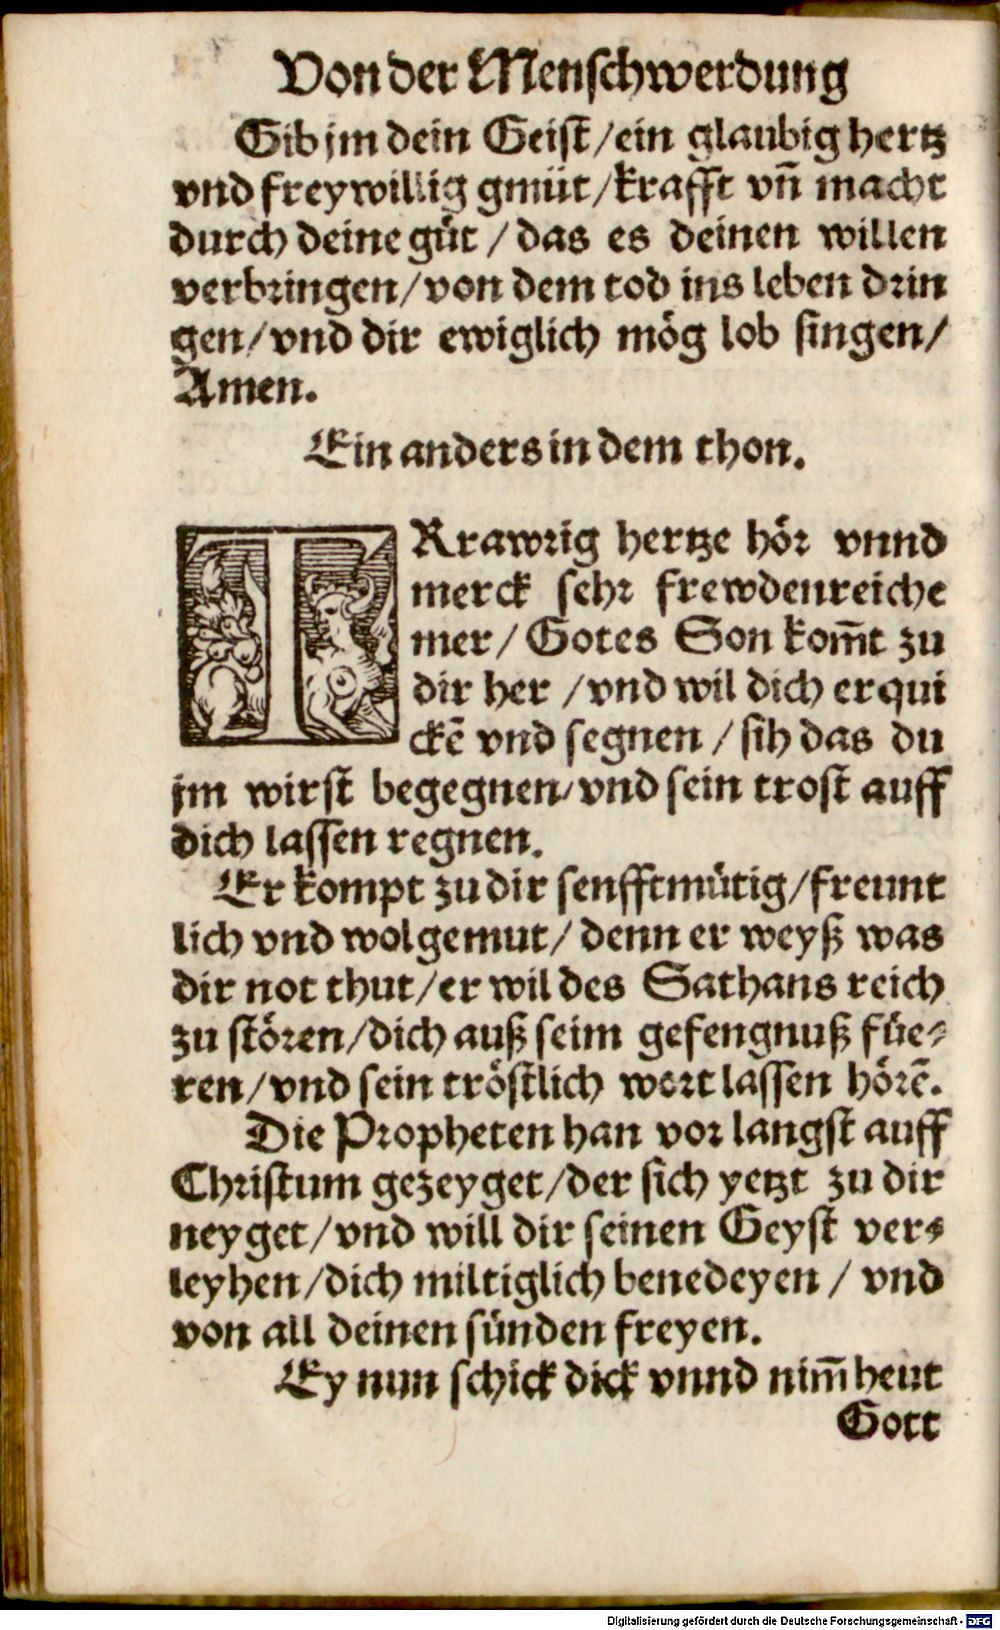 Von der Menschwerdung
Gib jm dein Geist/ein glaubig hertz
vnd freywillig gmüt/krafft vn̄ macht
durch deine güt/das es deinen willen
verbringen/von dem tod ins leben drin
gen/vnd dir ewiglich mög lob singen/
Amen.
Ein anders in dem thon.
TRrawrig hertze hör vnnd
merck sehr frewdenreiche
mer/Gotes Son kom̄t zu
dir her/vnd wil dich erqui
ckē vnd segnen/sih das du
jm wirst begegnen/vnd sein trost auff
dich lassen regnen.
Er kompt zu dir senfftmütig/freunt
lich vnd wolgemut/denn er weyß was
dir not thut/er wil des Sathans reich
zu stören/dich auß seim gefengnuß füe-
ren/vnd sein tröstlich wort lassen hörē.
Die Propheten han vor langst auff
Christum gezeyget/der sich yetzt zu dir
neyget/vnd will dir seinen Geyst ver-
leyhen/dich miltiglich benedeyen/vnd
von all deinen sünden freyen.
Ey nun schick dick vnnd nim̄ heut
Gott
Digitalisierung gefördert durch die Deutsche Forschungsgemeinschaft - DFG